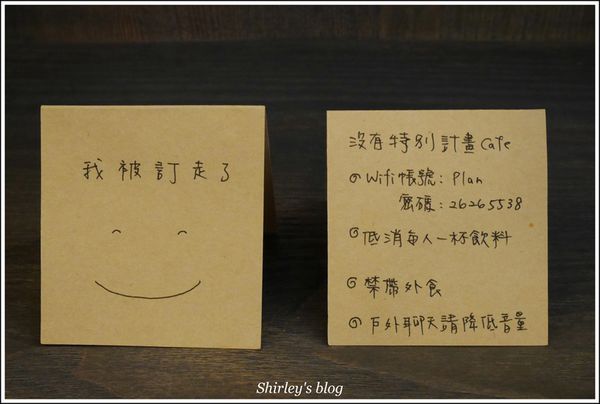 我被訂走了
沒有特別計畫Cafe
Wifi帳號：Plan
密碼：26265538
低消每人一杯飲料
禁帶外食
戶外聊天請降低音量
Shirley's blog